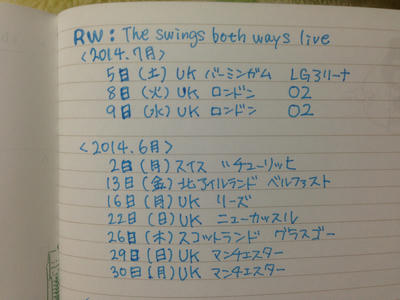 RW: The swings both ways live
<2014.7月>
5日(土) UK バーミンガム LG3リーナ
8日(火) UK ロンドン O2
9日(水) UK ロンドン O2
<2014.6月>
2日(月) スイス チューリッヒ
13日(金) 北アイルランド ベルファスト
16日(月) UK リーズ
22日(日) UK ニューカッスル
26日(木) スコットランド グラスゴー
29日(日) UK マンチェスター
30日(月) UK マンチェスター